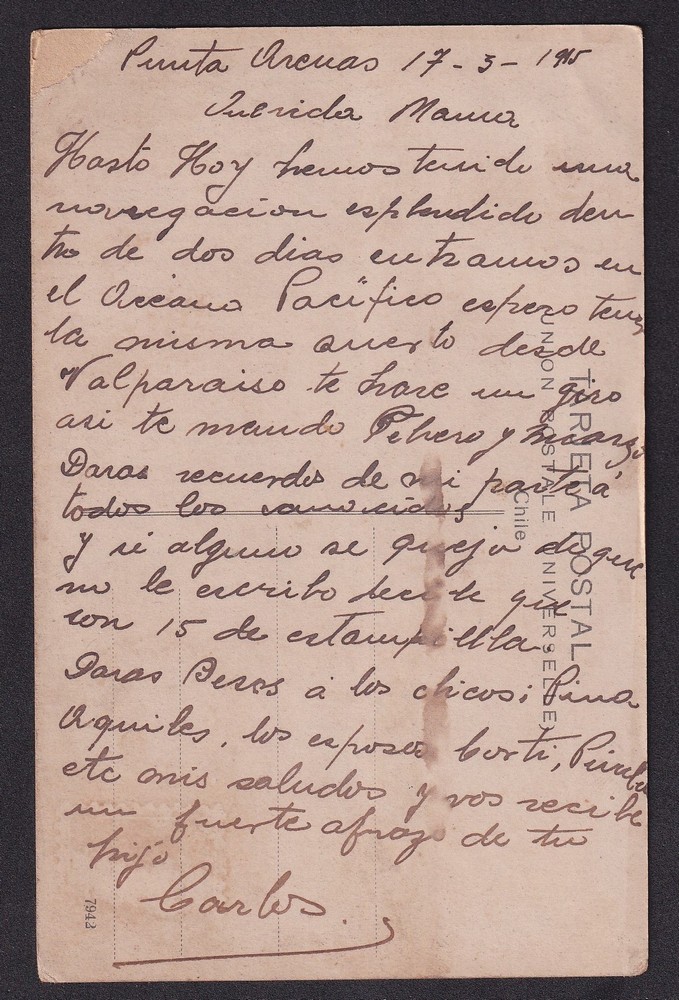 Punta Arenas 17-3-1915
Querida Mama
Hasto Hoy hemos tenido una
navegacion esplendido den
tro de dos dias entramos en
el Oceano Pacifico espero tener
la misma suerto desde
Valparaiso te hare un giro
asi te mando Febrero y marzo
Daras recuerdos de mi parte á
todos los conocidos
y si alguno se queja de que
no le escribo decile que
son 15 de estampilla
Daras Besos á los chicos; Pina
Aquiles, los esposos Corti,
etc mis saludos y vos recibe
un fuerte afrazo de tu
hijo
Carlos.
TARJETA POSTAL
(UNION POSTALE UNIVERSELLE)
Chile
7942